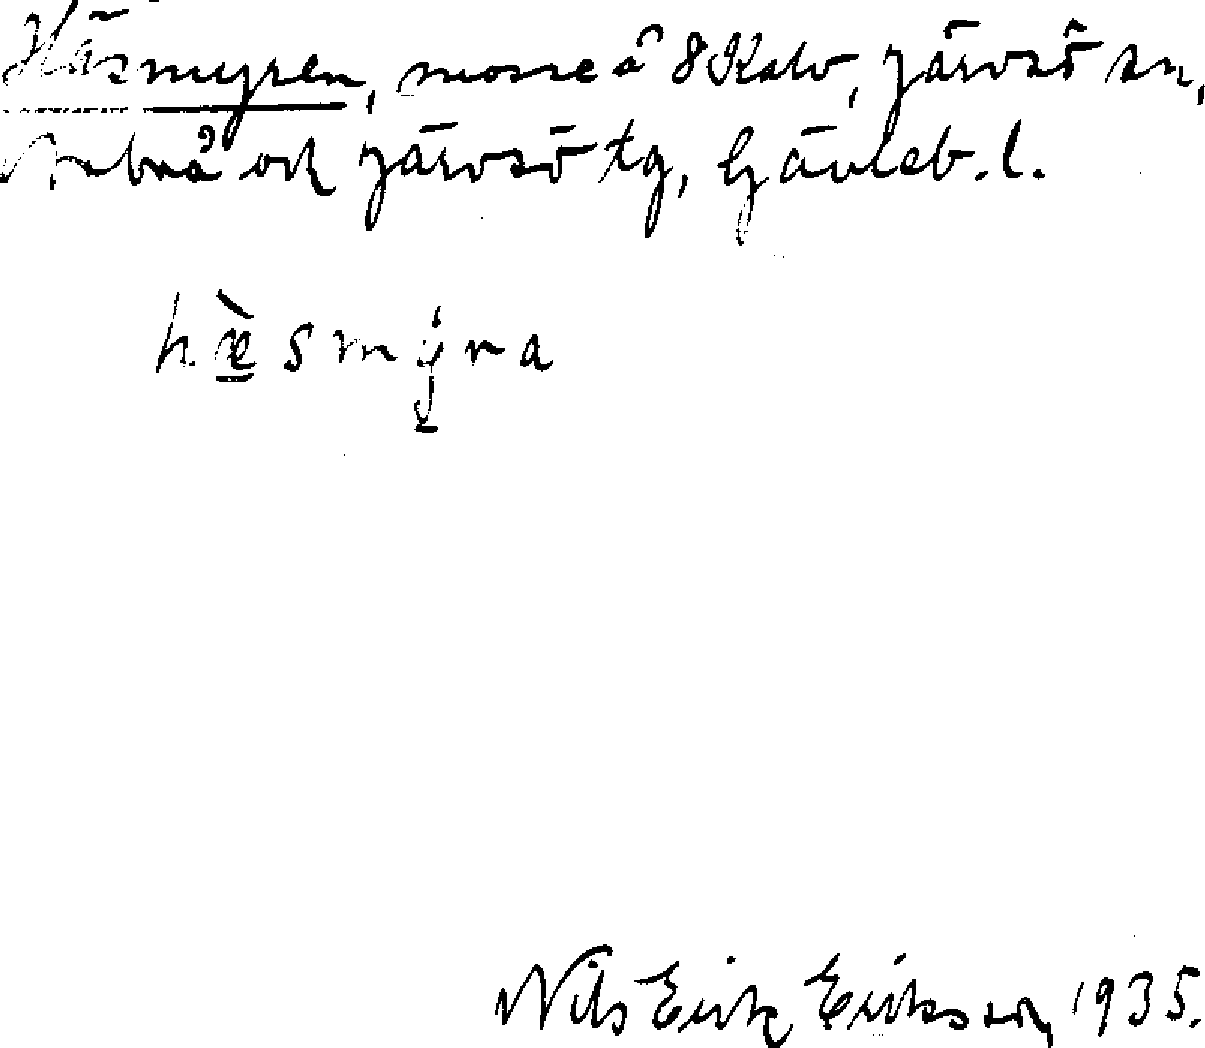 Häsmyren, mosse å 8 Kalv, Järvsö sn,
Arbrå och Järvsö tg, Gävleb. l.
hæ̀smyra
Nils Erik Eriksson, 1935.